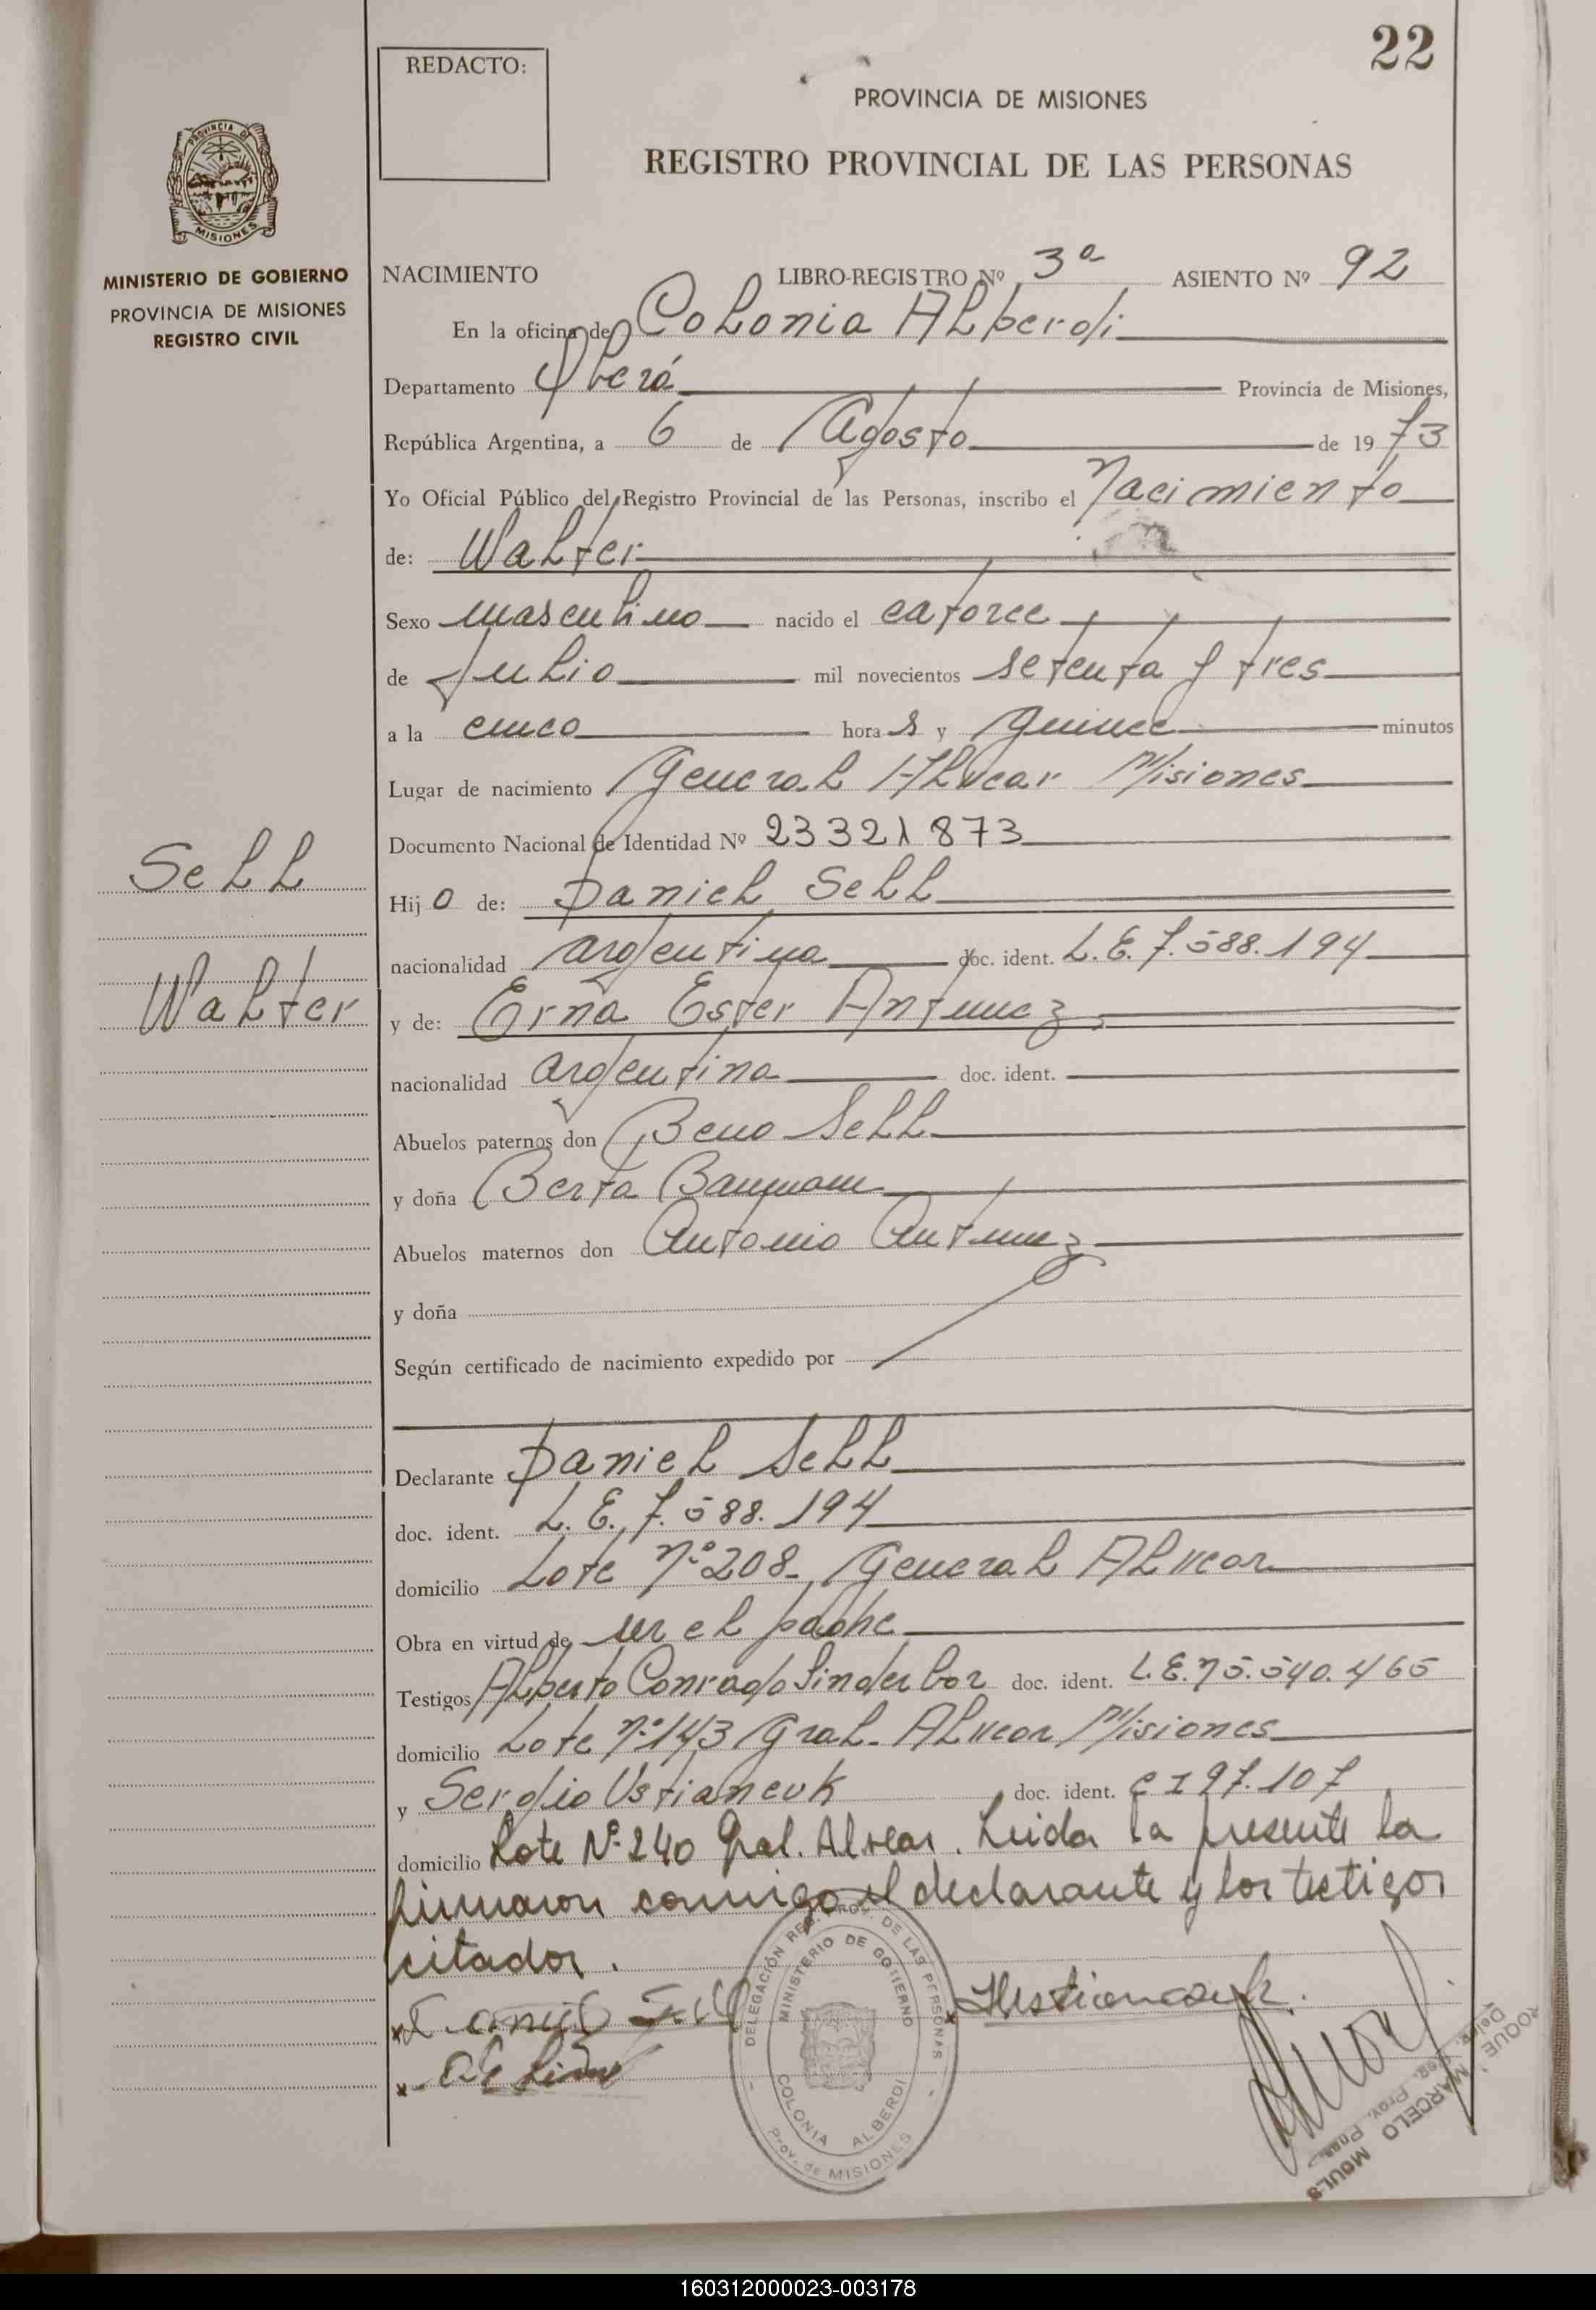 22
REDACTO:
PROVINCIA DE MISIONES
REGISTRO PROVINCIAL DE LAS PERSONAS
PROVINCIA DE
MISIONES
MINISTERIO DE GOBIERNO
PROVINCIA DE MISIONES
REGISTRO CIVIL
NACIMIENTO LIBRO-REGISTRO Nº 3ª ASIENTO Nº 92
En la oficina de Colonia Alberdi
Departamento Oberá Provincia de Misiones,
República Argentina, a 6 de Agosto de 1973
Yo Oficial Público del Registro Provincial de las Personas, inscribo el Nacimiento
de: Walter
Sexo masculino nacido el catorce
de Julio mil novecientos setenta y tres
a la cinco horas y quince minutos
Lugar de nacimiento General Alvear Misiones
Documento Nacional de Identidad Nº 23321873
Sell
Hijo de: Daniel Sell
nacionalidad argentina doc. ident. L.E. 7.588.194
Walter
y de: Erna Ester Antunez
nacionalidad argentina doc. ident.
Abuelos paternos don Beno Sell
y doña Berta Baumann
Abuelos maternos don Antonio Antunez
y doña
Según certificado de nacimiento expedido por
Declarante Daniel Sell
doc. ident. L.E. 7.588.194
domicilio Lote Nº 208- General Alvear
Obra en virtud de ser el padre
Testigos Alberto Conrado doc. ident. L.E. 540.465
domicilio Lote Nº 143 Gral. Alvear Misiones
y Sergio Ustianeuk doc. ident. C I 97.107
domicilio Lote Nº 240 Gral. Alvear. Leida la presente la
firmaron conmigo el declarante y los testigos
citados.
Daniel Sell
DELEGACIÓN REG. PROV. DE LAS PERSONAS
MINISTERIO DE GOBIERNO
COLONIA ALBERDI
Prov. de MISIONES
ROQUE MARCELO MOULS
Deleg. Reg. Prov. Pnas.
160312000023-003178